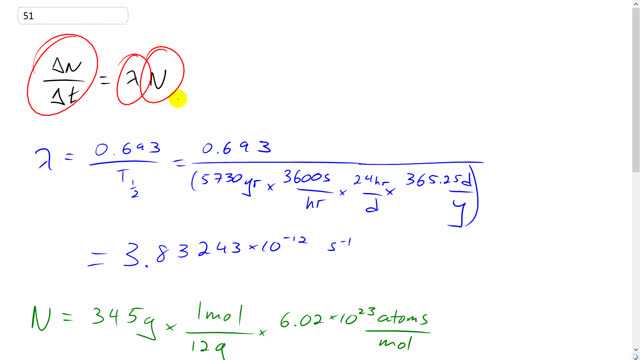 51
ΔN/Δt = λN
λ = 0.693/T½ = 0.693/(5730 yr × 3600s/hr × 24hr/d × 365.25d/y)
= 3.83243 × 10⁻¹² s⁻¹
N = 345g × 1mol/12g × 6.02 × 10²³ atoms/mol